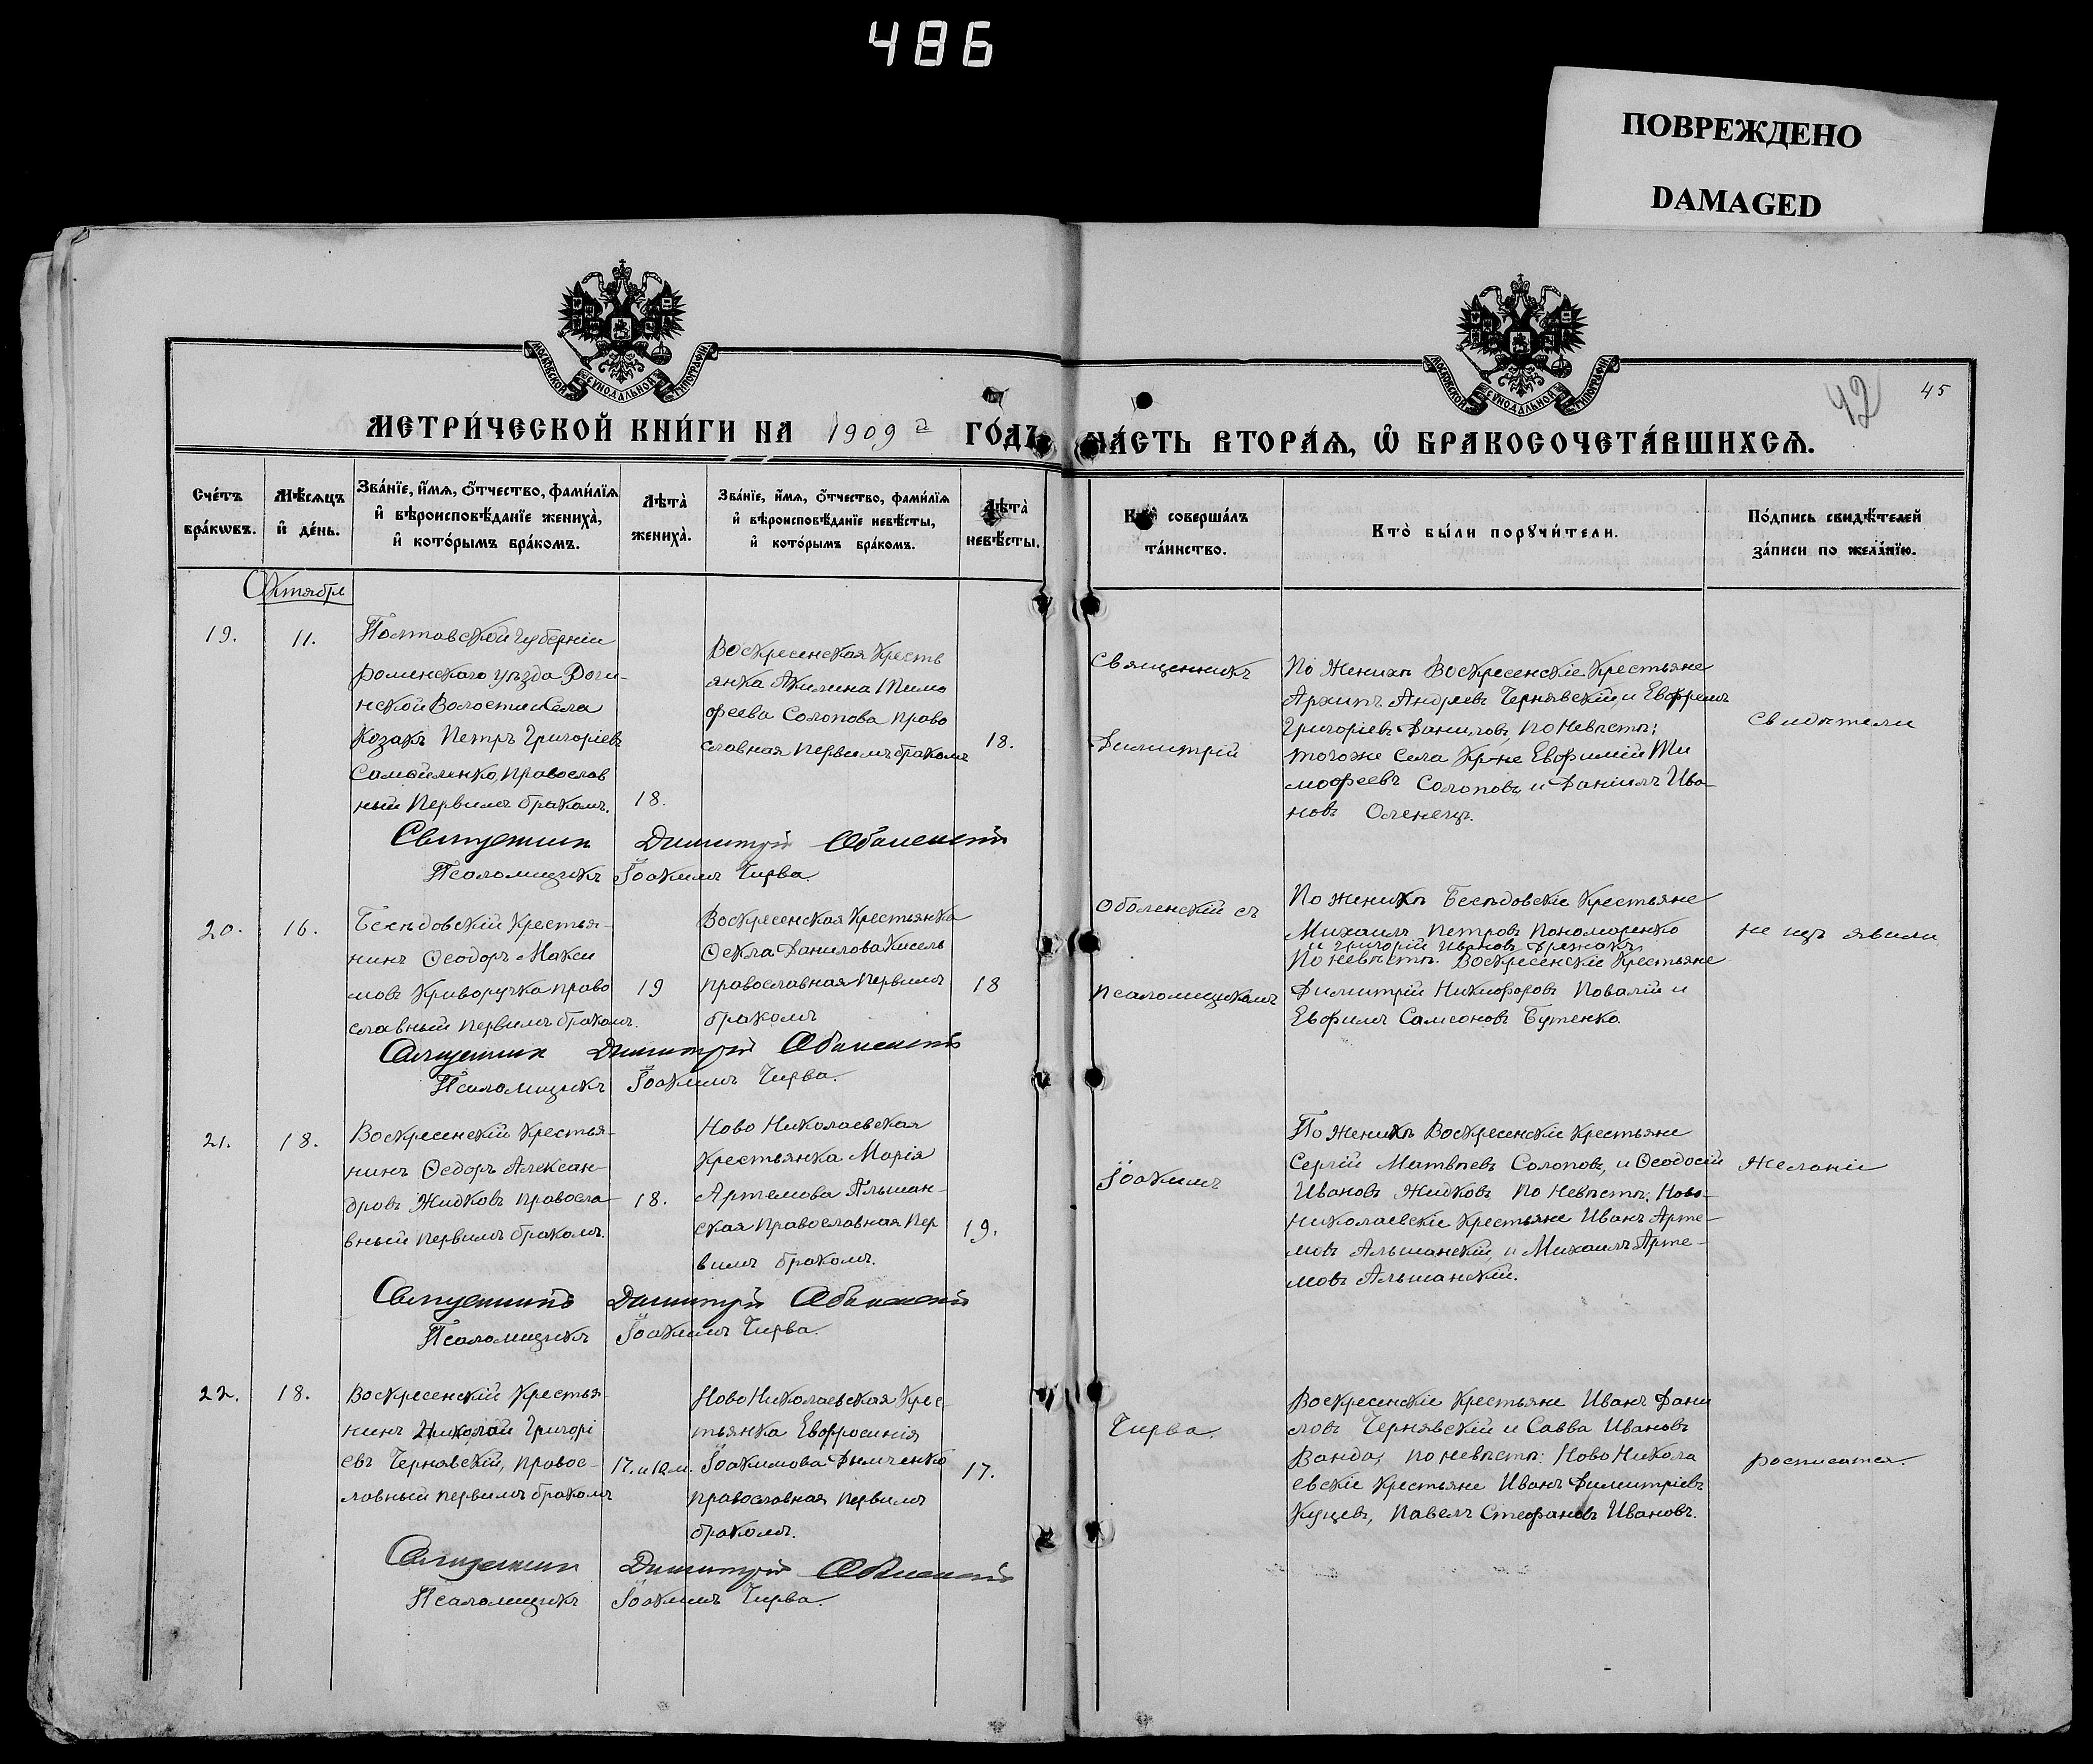 486
ПОВРЕЖДЕНО
DAMAGED
МОСКОВСКОЙ СУНОДАЛЬНОЙ ТИПОГРАФІИ
МОСКОВСКОЙ СУНОДАЛЬНОЙ ТИПОГРАФІИ
42
45
МЕТРИ́ЧЕСКОЙ КНИ́ГИ НА 1909 ГО́ДЪ
ЧА́СТЬ ВТОРА́Ѧ, Ѽ БРАКОСОЧЕТА́ВШИХСѦ.
Сче́тъ
бра́кѡвъ.
Мѣ́сѧцъ
и҆ де́нь.
Зва́нїе, и҆́мѧ, ѻ҆́тчество, фами́лїѧ
и҆ вѣроисповѣ́данїе жениха̀,
и҆ кото́рымъ бра́комъ.
Лѣта̀
жениха̀.
Зва́нїе, и҆́мѧ, ѻ҆́тчество, фами́лїѧ
и҆ вѣроисповѣ́данїе невѣ́сты,
и҆ кото́рымъ бра́комъ.
Лѣта̀
невѣ́сты.
Кто̀ соверша́лъ
та́инство.
Кто̀ бы́ли порꙋчи́тели.
По́дпись свидѣ́телей
за́писи по жела́нїю.
Октября
19.
11.
Полтавской губерніи
роменскаго уѣзда
нской Волости Села
Козакъ Петръ Григоріевъ
Самойленко, Православ
ный Первымъ бракомъ.
18.
Воскресенская Кресть
янка Акилина Тимо
феева Солопова право
славная первымъ бракомъ
18.
Священникъ
Димитрій
По Женихѣ Воскресенскіе Крестьяне
Архипъ Андреевъ Чернявскій, и Евфремъ
Григоріевъ Даниловъ, По Невѣстѣ:
тогоже Села Кр-не Евфимій Ти
мофеевъ Солоповъ, и Даніилъ Ива
новъ Оленецъ.
Свидѣтели
Священникъ Димитрій Оболенскій
Псаломщикъ Іоакимъ Чирва.
20.
16.
Бесѣдовскій Крестья-
нинъ Ѳеодоръ Макси
мовъ Криворучко право
славный первымъ бракомъ.
19
Воскресенская Крестьянка
Ѳекла Данилова Кисель
православная первымъ
бракомъ
18
Оболенскій съ
псаломщикомъ
По женихѣ Бесѣдовскіе Крестьяне
Михаилъ Петровъ Пономаренко
и Григорій Ивановъ
По невѣстѣ: Воскресенскіе Крестьяне
Димитрій Никифоровъ Повалій и
Евфимъ Самсоновъ Бутенко.
не изъ явили
Священникъ Димитрій Оболенскій
Псаломщикъ Іоакимъ Чирва.
21.
18.
Воскресенскій Крестья-
нинъ Ѳедоръ Алексан-
дровъ Жидковъ правосла
вный первымъ бракомъ.
18.
Ново Николаевская
Крестьянка Марія
Артемова Альшан-
ская Православная Пер
вымъ бракомъ.
19.
Іоакимъ
По Женихѣ Воскресенскіе Крестьяне
Сергій Матвѣевъ Солоповъ, и Ѳеодосій
Ивановъ Жидковъ По Невѣстѣ: Ново-
николаевскіе Крестьяне Иванъ Арте-
мовъ Альшанскій, и Михаилъ Арте-
мовъ Альшанскій.
Желаніе
Священникъ Димитрій Оболенскій
Псаломщикъ Іоакимъ Чирва.
22.
18.
Воскресенскій Крестья-
нинъ Николай Григорі
евъ Чернявскій, правос-
лавный первымъ бракомъ
17. и 10 м.
Ново Николаевская Крес-
тьянка Евфросинія
Іоакимова Димченко
православная первымъ
бракомъ.
17.
Чирва.
Воскресенскіе Крестьяне Иванъ Дани
ловъ Чернявскій и Савва Ивановъ
Ванда, По невѣстѣ: Ново Никола
евскіе Крестьяне Иванъ Димитріевъ
Куцевъ, Павелъ Стефановъ Ивановъ.
росписатся.
Священникъ Димитрій Оболенскій
Псаломщикъ Іоакимъ Чирва.